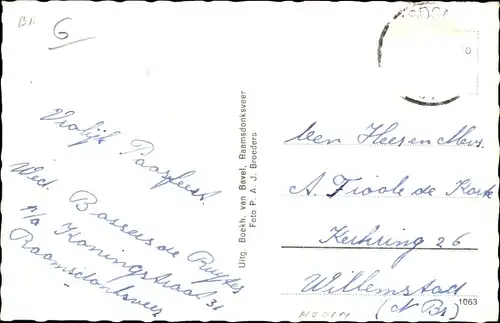 6
Vrolijk Paasfeest.
Wed. Bassers de Ruyter
p/a Koningstraat 31
Raamsdonksveer
Uitg. Boekh. van Bavel, Raamsdonksveer
Foto P. A. J. Broeders
den Heer en Mevr.
A. Fioole de Korte
Kerkring 26
Willemstad
(N Br)
1063